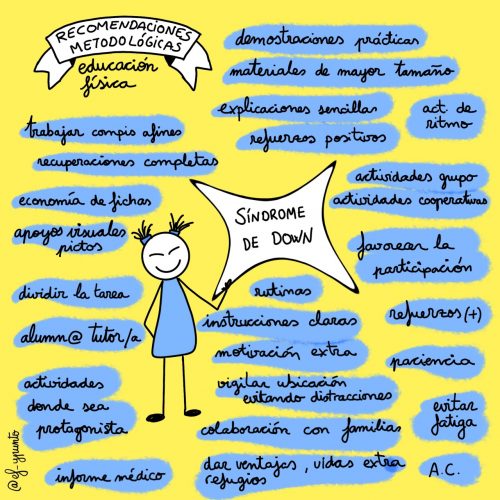 RECOMENDACIONES
METODOLÓGICAS
educación
física
demostraciones prácticas
materiales de mayor tamaño
explicaciones sencillas
act. de
ritmo
refuerzos positivos
trabajar compis afines
recuperaciones completas
actividades grupo
actividades cooperativas
economía de fichas
apoyos visuales
pictos
SÍNDROME
DE DOWN
favorecer la
participación
dividir la tarea
rutinas
instrucciones claras
refuerzos (+)
alumn@ tutor/a
motivación extra
paciencia
actividades
donde sea
protagonista
vigilar ubicación
evitando distracciones
evitar
fatiga
colaboración con familias
informe médico
dar ventajas, vidas extra
refugios
A.C.
@ef_ypunto